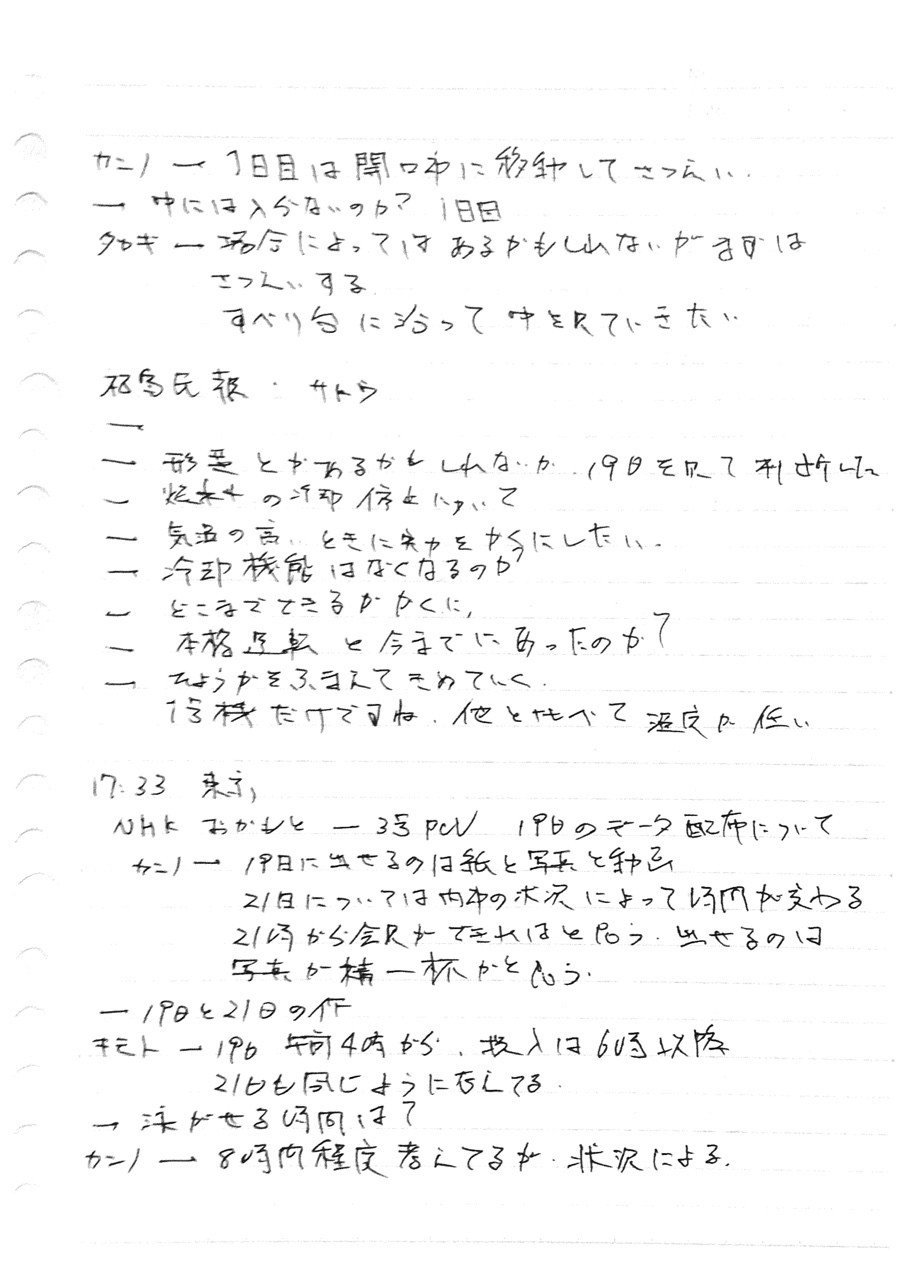 カンノ ー 1日目は開口部に移動してさつえい.
→ 中には入らないのか? 1日目
タカギ ー 場合によってはあるかもしれないがまずは
さつえいする
すべり台に沿って中を見ていきたい
福島民報. サトウ
ー
ー 形差とかあるかもしれないが. 19日を見て判断した
ー 燃料の冷却停止について
ー 気温の高いときに実力をかくにしたい.
ー 冷却機能はなくなるのか?
ー どこまでできるかかくに,
ー 本格運転と今までにあったのか?
ー ひょうかをふまえてきめていく.
1号機だけですね. 他と比べて温度が低い
17:33 東京,
NHK おかもと ー 3号PCV 19日のデータ配布について
カンノ ー 19日に出せるのは紙と写真と動画
21日については内部の状況によって時間が変わる
21時から会見ができればと思う. 出せるのは
写真が精一杯かと思う.
ー 19日と21日の作
キモト ー 19日 午前4時から. 投入は6時以降
21日も同じように考えてる.
→ 泳がせる時間は?
カンノ ー 8時間程度考えてるが. 状況による.